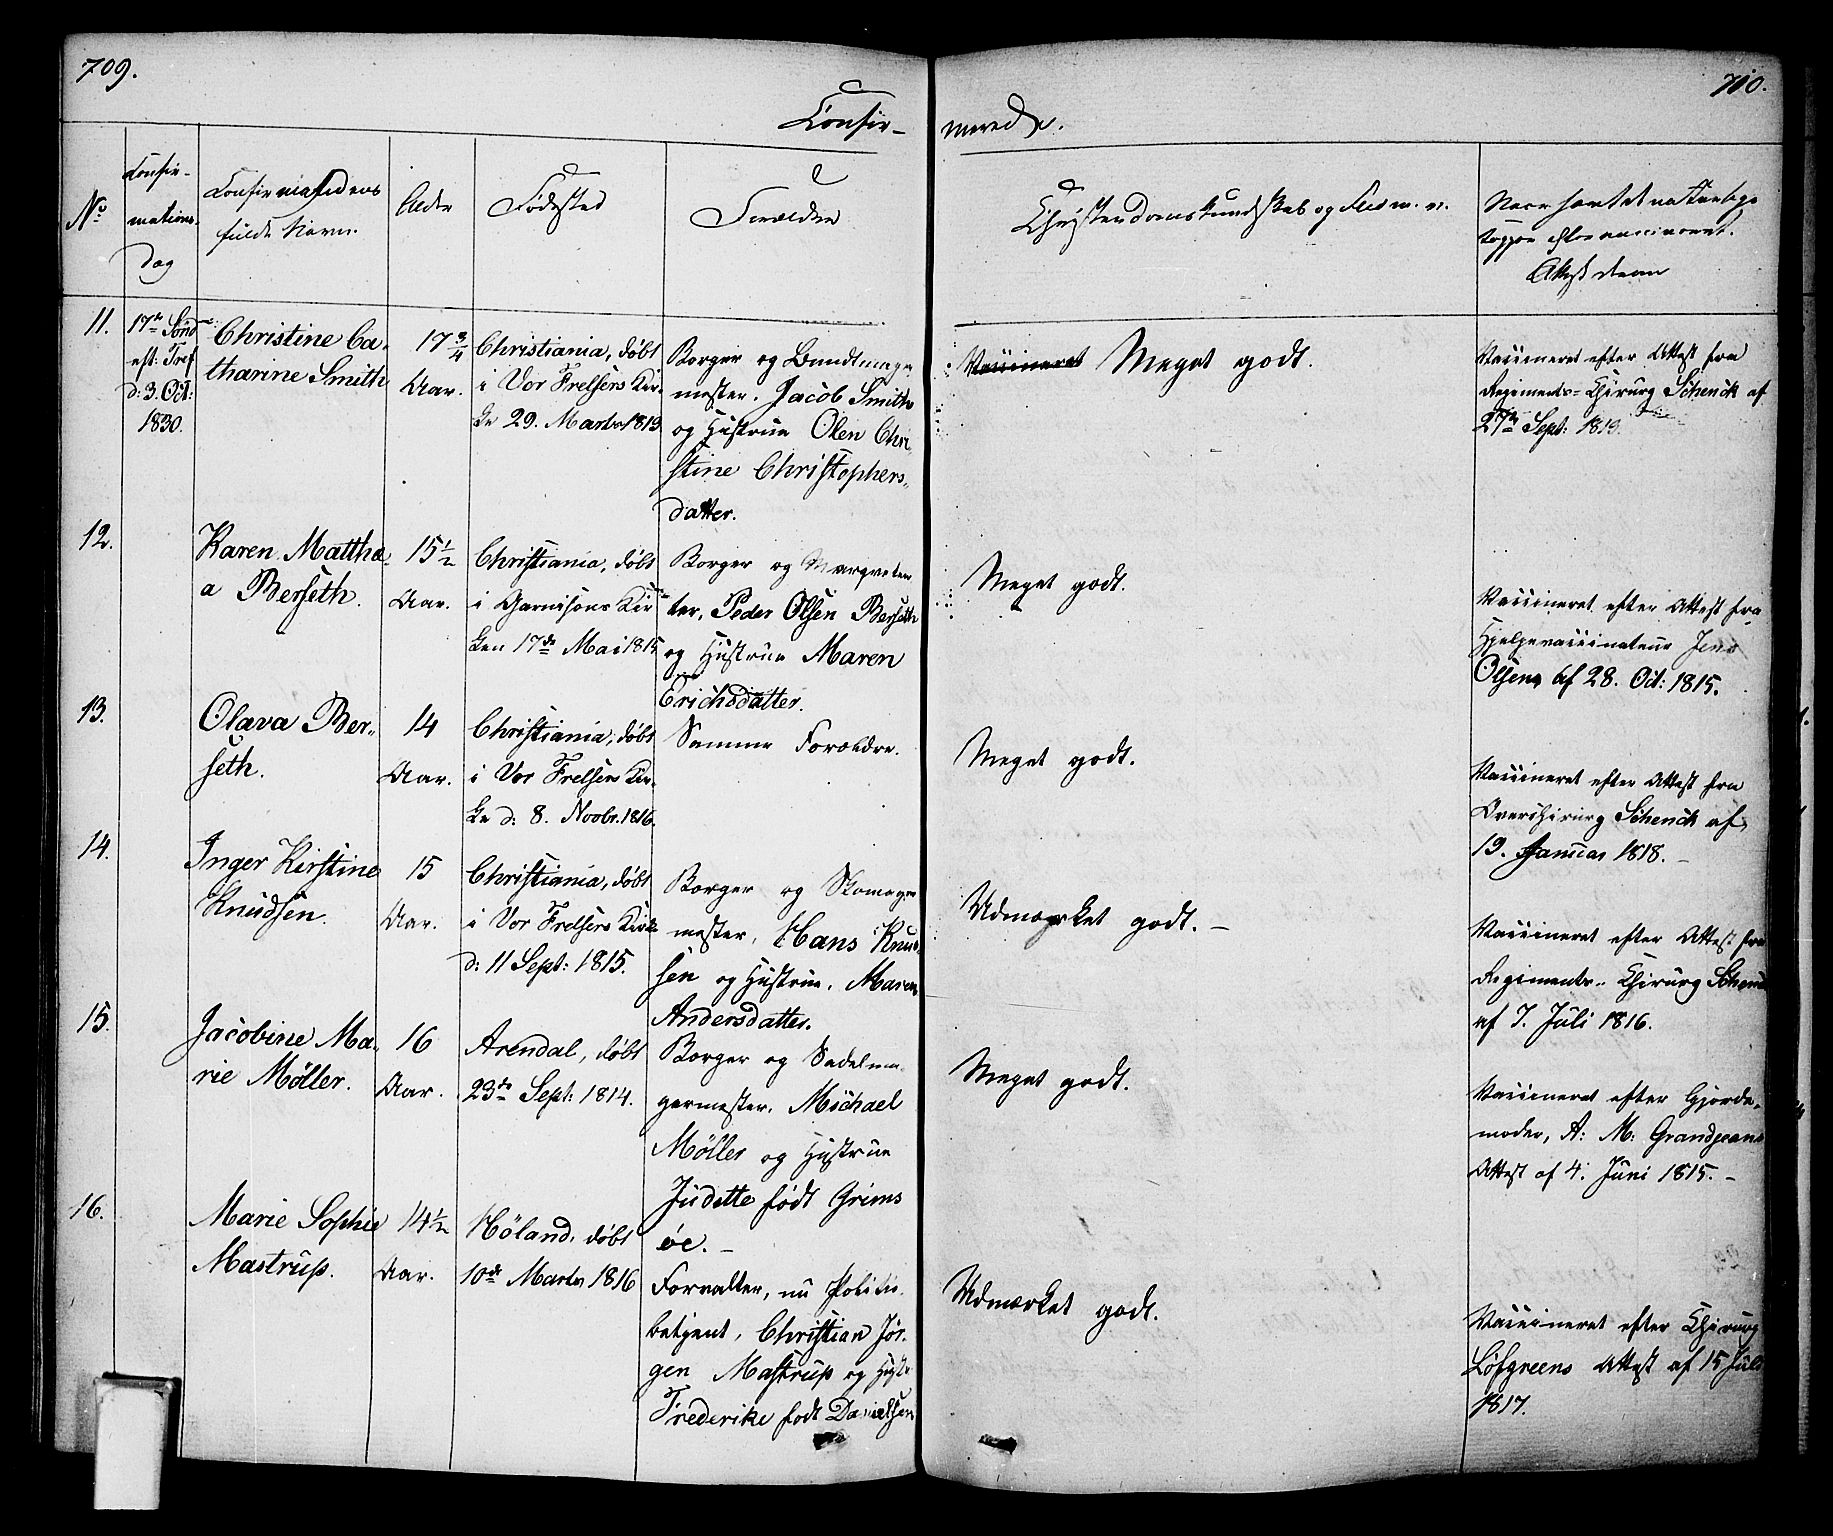 709.
710.
Confir-
merede.
No
Confir-
mations-
Dag
Confirmandens
fulde Navn.
Alder
Fødested
Forældre
Christendomskundskab og Flid m. v.
Naar havt de naturlige
Kopper eller vaccineret.
Attest derom
11.
17de Sønd
eft: Tref
d: 3. Oct:
1830.
Christine Ca-
tharine Smith
17 3/4
Aar.
Christiania, døbt
i Vor Frelsers Kir-
ke 29. Marts 1813
Borger og Bundtmager
mester, Jacob Smith
og Hustrue Olen Chri-
stine Christophers-
datter.
Meget godt.
Vaccineret efter Attest fra
Regiments-Chirurg Schenck af
27de Sept: 1813.
12.
Karen Matthe-
a Berseth.
15 1/2
Aar.
Christiania, døbt
i Garnisons Kir-
ken 17de Mai 1815
Borger og Marqveten
ter, Peder Olsen Berseth
og Hustrue Maren
Erichsdatter.
Meget godt.
Vaccineret efter Attest fra
Hjelpevaccinateur Jens
Olsen af 28. Oct: 1815.
13.
Olava Ber-
seth.
14
Aar.
Christiania, døbt
i Vor Frelsers Kir-
ke d: 8. Novbr. 1816.
Samme Forældre.
Meget godt.
Vaccineret efter Attest fra
Overchirurg Schenck af
19. Januar 1818. -
14.
Inger Kirstine
Knudsen.
15
Aar.
Christiania, døbt
i Vor Frelsers Kirke
d: 11 Sept: 1815.
Borger og Skomager
mester, Hans Knud-
sen og Hustrue, Maren
Andersdatter.
Udmærket godt. -
Vaccineret efter Attest fra
Regiments-Chirurg Schenck
af 7. Juli 1816.
15.
Jacobine Ma-
rie Möller.
16
Aar.
Arendal, døbt
23de Sept: 1814.
Borger og Sadelma-
germester, Michael
Möller og Hustrue
Judette født Grims
öe. -
Meget godt.
Vaccineret efter Gjorde-
moder, A: M: Grandjeans
Attest af 4. Juni 1815. -
16.
Marie Sophie
Mastrup.
14 1/2
Aar.
Höland, døbt
10de Marts 1816
Forvalter, nu Politie
betjent, Christian Jör-
gen Mastrup og Hust:
Frederike født Danielsen
Udmærket godt.
Vaccineret efter Chirurg
Löfgreens Attest af 15 Juli
1817.